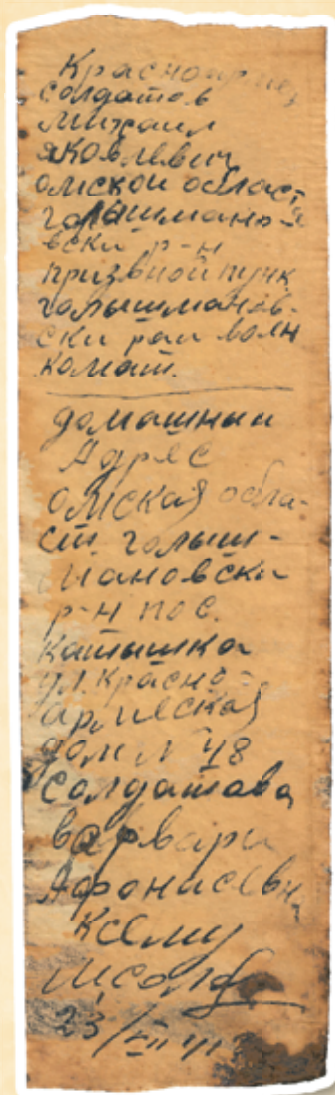 Красноармеец
солдатов
михаил
яковлевич
омской област
голышмано-
вски р-н
призвной пунк
голышманов-
ски раи воен
комат.
домашнии
Адрес
омская обла-
сти. голыш-
мановски
р-н пос.
Катышка
ул. красно-
армиская
дом N 48
Солдатова
варвари
Афонисевн
К сему
мсолд
23/VII 41